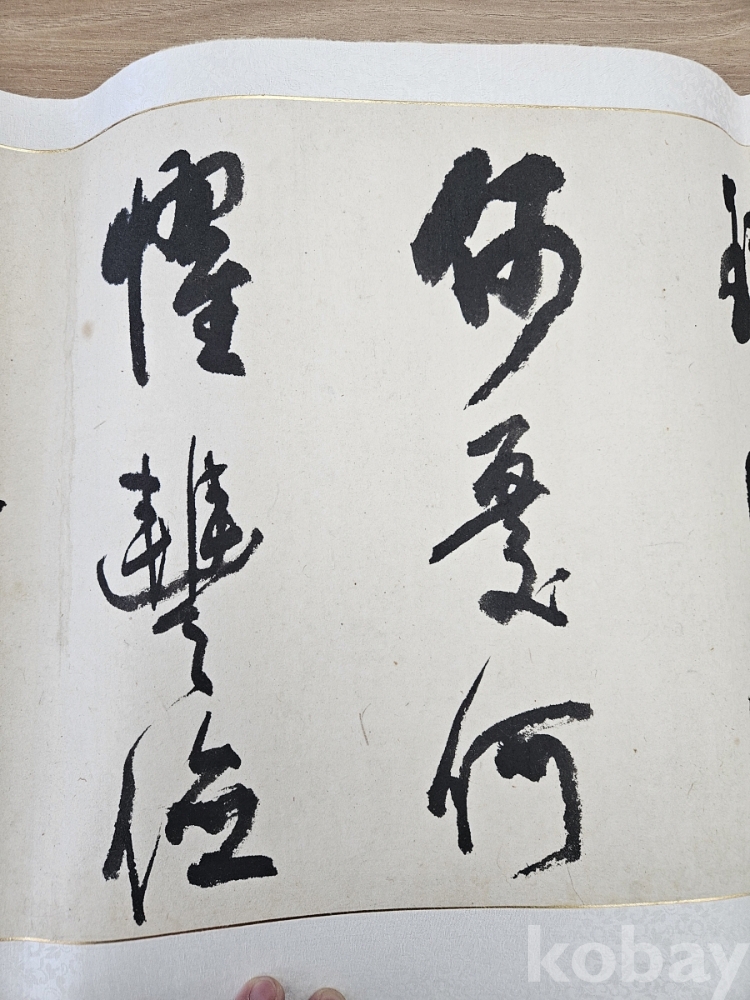 何憂何
懼豐儉
kobay